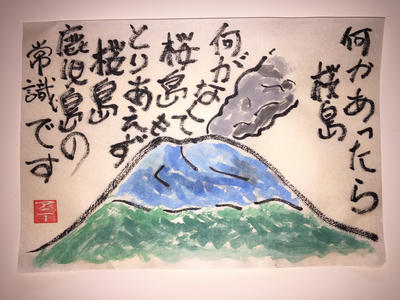 何かあったら
桜島
何がなくても
桜島
とりあえず
桜島
鹿児島の
常識です